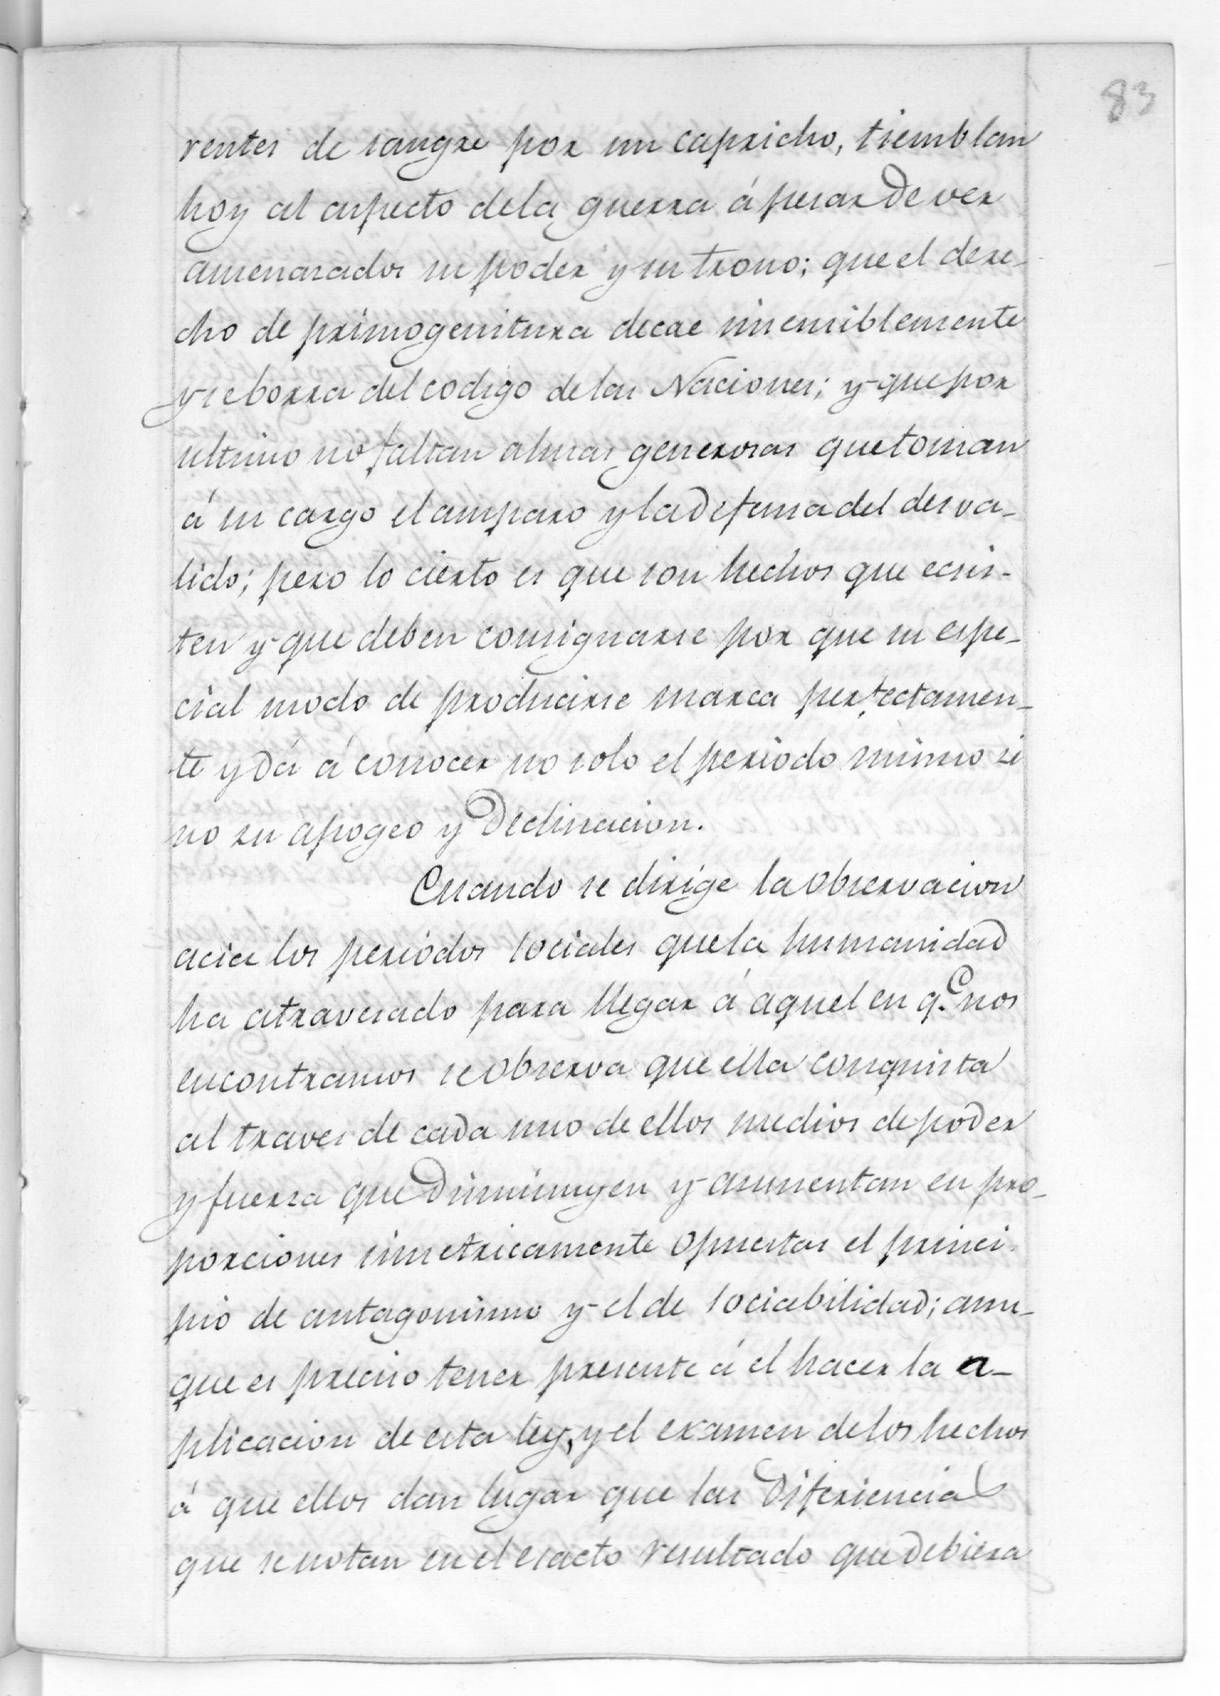 83
rentes de sangre por un capricho, tiemblan
hoy al aspecto dela guerra á pesar de ver
amenasados su poder y su trono; que el dere-
cho de primogenitura decae insensiblemente
y se borra del codigo de las Naciones; y que por
ultimo no faltan almas generosas que toman
á su cargo el amparo y la defensa del desva-
lido; pero lo cierto es que son hechos que ecsis-
ten y que deben consignarse por que su espe-
cial modo de producirse marca perfectamen-
te y dá á conocer no solo el periodo mismo si
no su apogeo y declinacion.
Cuando se dirige la observacion
acia los periódos sociales que la humanidad
ha atravesado para llegar á aquel en q.e nos
encontramos se observa que ella conquista
al traves de cada uno de ellos medios de poder
y fuerza que disminuyen y aumentan en pro-
porciones simetricamente opuestas el princi-
pio de antagonismo y el de sociabilidad; aun-
que es preciso tener presente á el hacer la a-
plicacion de esta ley, y el examen de los hechos
á que ellos dan lugar que las diferiencias
que se notan en el esacto resultado que debiera